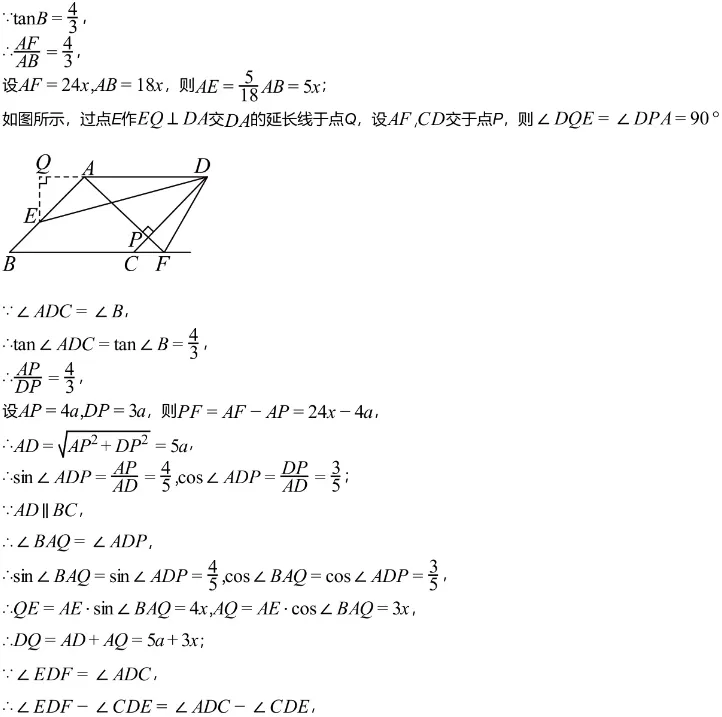 ∵tanB=4/3,
∴AF/AB=4/3,
设AF=24x,AB=18x，则AE=5/18AB=5x；
如图所示，过点E作EQ⊥DA交DA的延长线于点Q，设AF,CD交于点P，则∠DQE=∠DPA=90°
Q A D
E
P
B C F
∵∠ADC=∠B,
∴tan∠ADC=tan∠B=4/3,
∴AP/DP=4/3,
设AP=4a,DP=3a，则PF=AF-AP=24x-4a,
∴AD=√(AP²+DP²)=5a,
∴sin∠ADP=AP/AD=4/5,cos∠ADP=DP/AD=3/5；
∵AD∥BC,
∴∠BAQ=∠ADP,
∴sin∠BAQ=sin∠ADP=4/5,cos∠BAQ=cos∠ADP=3/5,
∴QE=AE·sin∠BAQ=4x,AQ=AE·cos∠BAQ=3x,
∴DQ=AD+AQ=5a+3x；
∵∠EDF=∠ADC,
∴∠EDF-∠CDE=∠ADC-∠CDE,